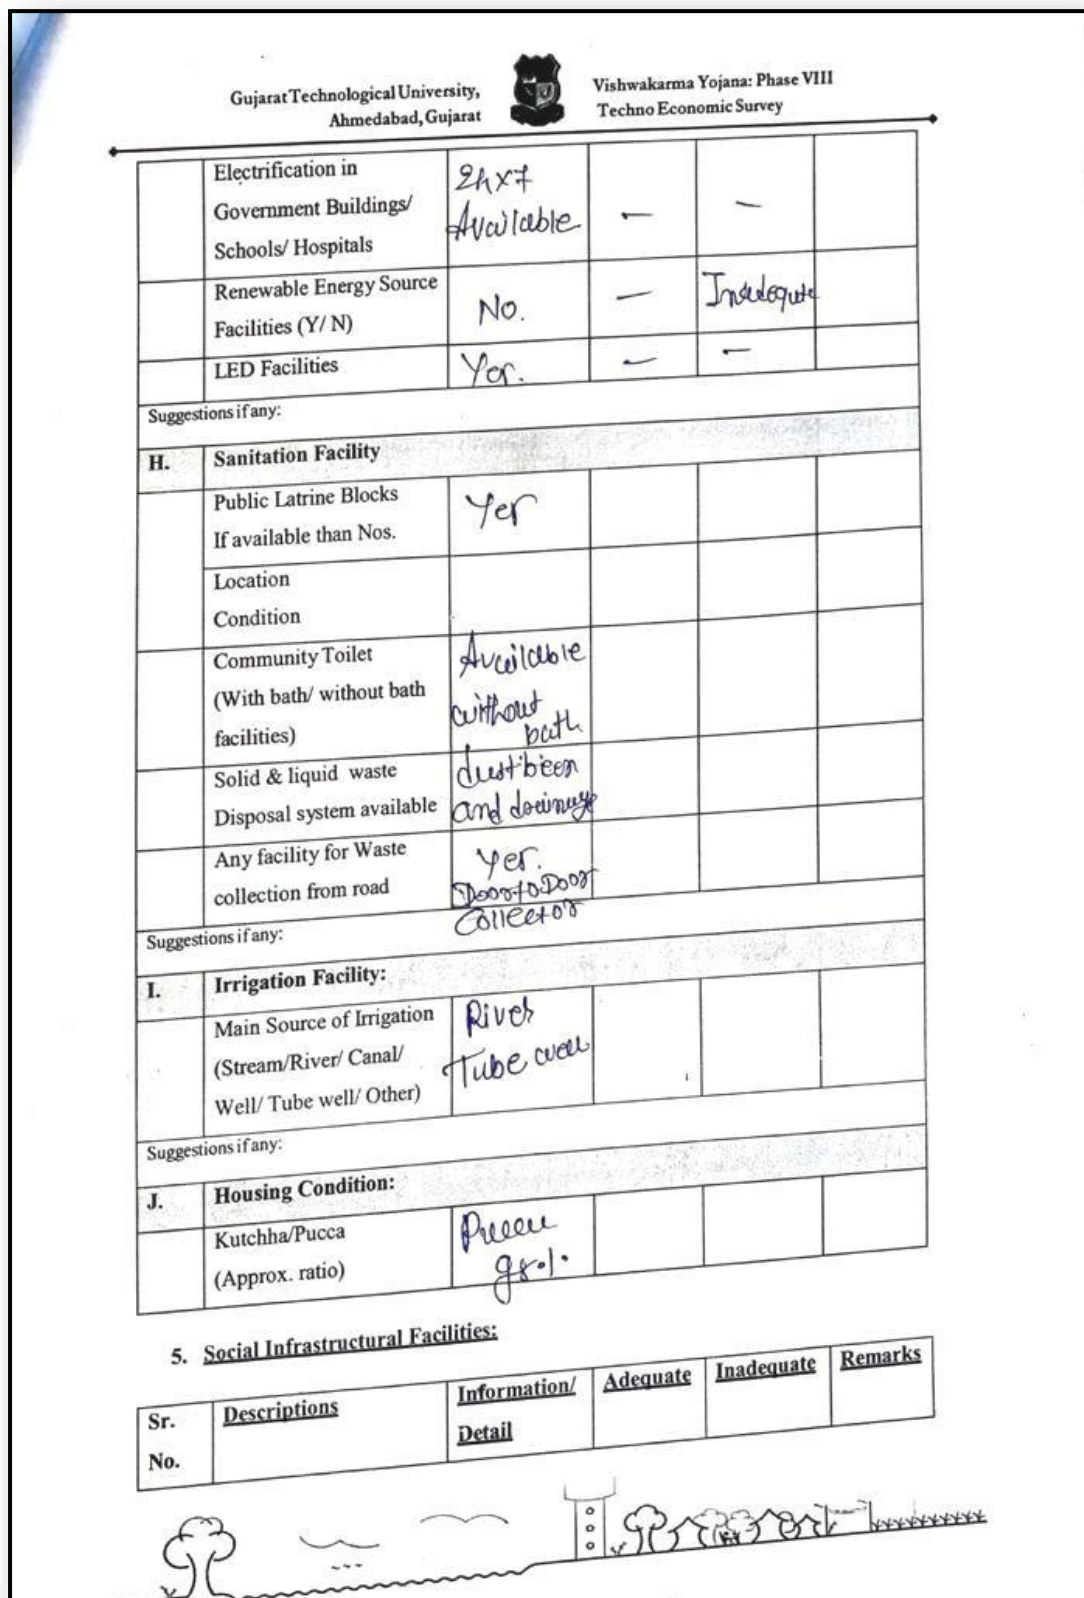 Gujarat Technological University,
Ahmedabad, Gujarat
Vishwakarma Yojana: Phase VIII
Techno Economic Survey
Electrification in
Government Buildings/
Schools/ Hospitals
24x7
Available
—
—
Renewable Energy Source
Facilities (Y/ N)
No.
—
LED Facilities
Yes.
—
—
Suggestions if any:
H. Sanitation Facility
Public Latrine Blocks
If available than Nos.
Yes
Location
Condition
Community Toilet
(With bath/ without bath
facilities)
Available
without
bath
Solid & liquid waste
Disposal system available
dustbeen
and drainage
Any facility for Waste
collection from road
Yes.
Door to Door
Collector
Suggestions if any:
I. Irrigation Facility:
Main Source of Irrigation
(Stream/River/ Canal/
Well/ Tube well/ Other)
River
Tube well
Suggestions if any:
J. Housing Condition:
Kutchha/Pucca
(Approx. ratio)
5. Social Infrastructural Facilities:
Sr.
No.
Descriptions
Information/
Detail
Adequate
Inadequate
Remarks